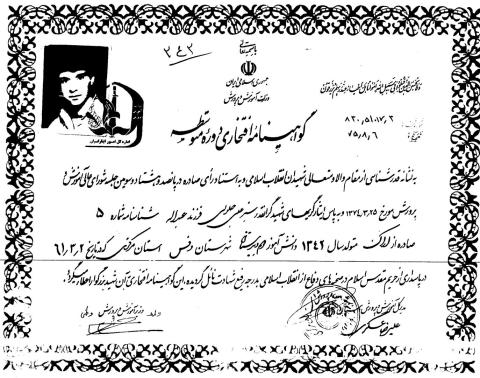 باسمه تعالی
۳۴۳
جمهوری اسلامی ایران
وزارت آموزش و پرورش
۸۲۰/۵۱۰۱۷/۲
۷۵/۸/۶
گواهینامهٔ افتخاری دوره متوسطه
به نشانه قدرشناسی از مقام والا و متعالی شهیدان انقلاب اسلامی و به استناد رأی صادره در پانصد و هشتاد و سومین جلسه شورای عالی آموزش و
پرورش مورخ ۱۳۷۴/۳/۲۵ به پاس ایثارگریهای شهید گرانقدر فرزند شناسنامه شماره ۵
صادره از اراک متولد سال ۱۳۴۲ دانش آموز شهرستان استان مرکزی که در تاریخ ۶۱/۳/۲
در پاسداری از حریم مقدس اسلام در صحنه های دفاع از انقلاب اسلامی به درجه رفیع شهادت نائل گردیده، این گواهینامه افتخاری به آن شهید بزرگوار اعطا میگردد.
مدیر کل آموزش و پرورش
وزیر آموزش و پرورش